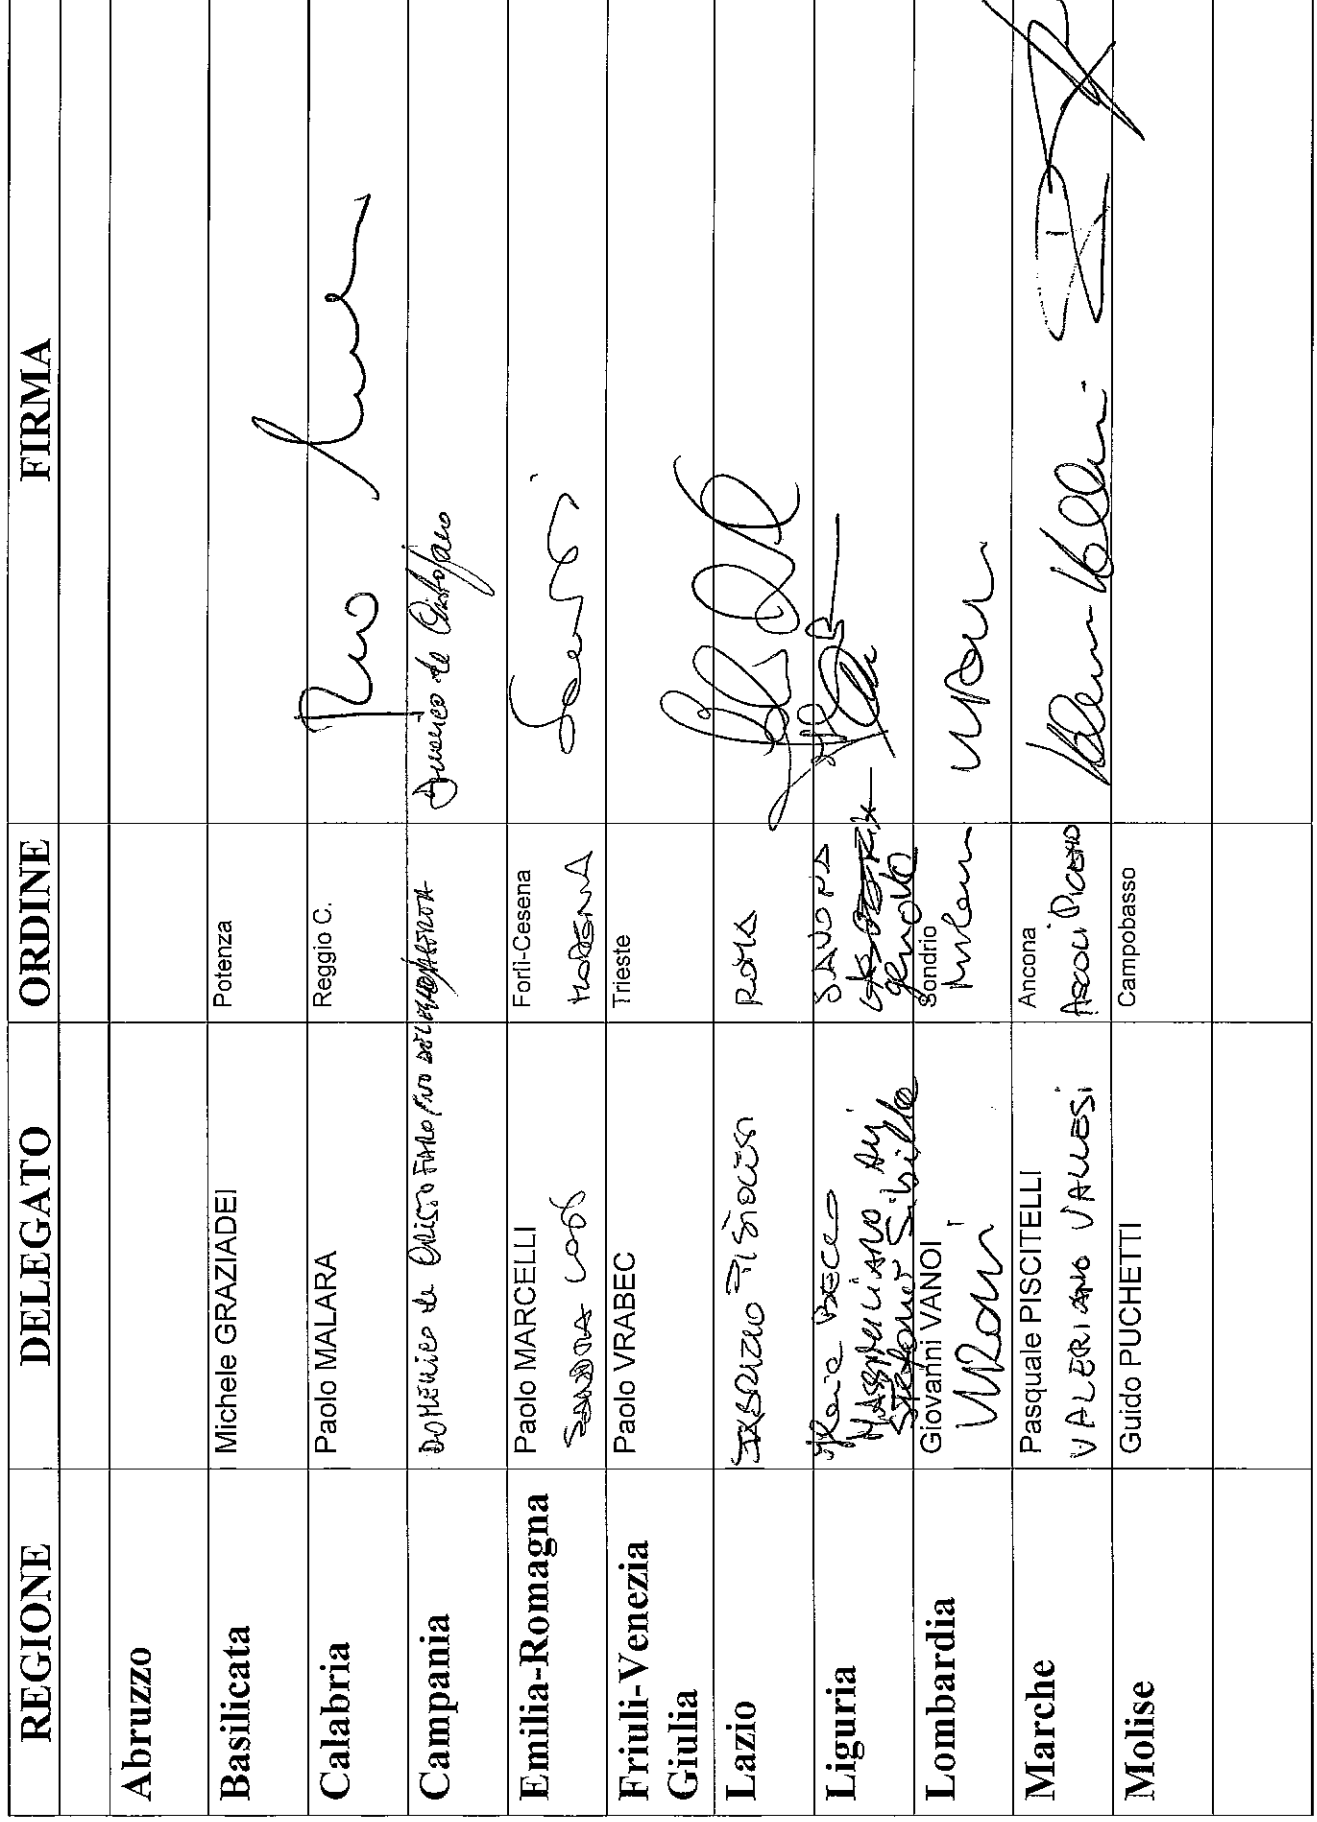 REGIONE DELEGATO ORDINE FIRMA
Abruzzo
Basilicata Michele GRAZIADEI Potenza
Calabria Paolo MALARA Reggio C.
Campania DOMENICO de CRISTOFARO Domenico de Cristofaro
Emilia-Romagna Paolo MARCELLI Forlì-Cesena
SANDRA LOSI MODENA
Friuli-Venezia Paolo VRABEC Trieste
Giulia
Lazio FABRIZIO PISTOLESI ROMA
Liguria Ilaria BECCO SAVONA
MASSIMILIANO
Stefano Sibilla Genova
Lombardia Giovanni VANOI Sondrio
Marche Pasquale PISCITELLI Ancona
VALERIANO VALLESI ASCOLI PICENO
Molise Guido PUCHETTI Campobasso